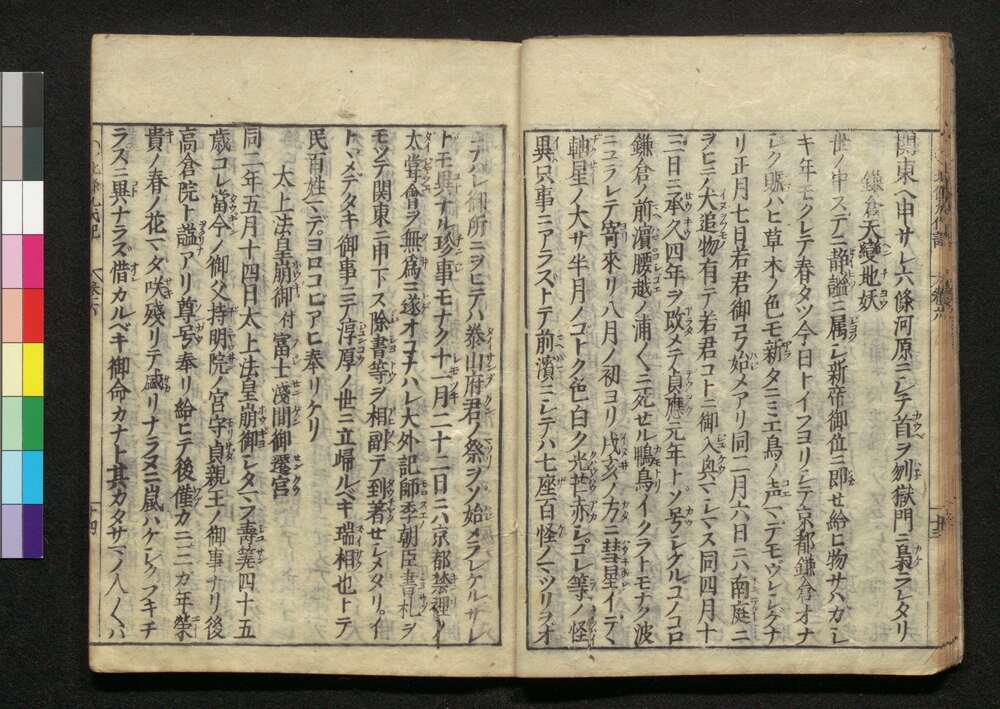 関東ヘ申サレ六條河原ニシテ首ヲ刎獄門ニ梟ラレタリ
鎌倉天變地妖
世ノ中ステニ静謐ニ属シ新帝御位ニ即セ給ヒ物サハカシ
キ年モクレテ春タツ今日トイフヨリシテ京都鎌倉オナ
シク賑ハヒ草木ノ色モ新タニミエ鳥ノ声マデモヴレシクナ
リ正月七日若君御弓始メアリ同二月六日ニハ南庭ニ
ヲヒテ犬追物有テ若君コトニ御入興マシマス同四月十
三日ニ承久四年ヲ改メテ貞應元年トソ号シケルコノコロ
鎌倉ノ前濱腰越ノ浦々ニ死セル鴨鳥イクラトモナク波
ニユラレテ寄來リ八月ノ初ヨリ戌亥ノ方ニ彗星イテヽ
軸星ノ大サ半月ノコトク色白ク光芒赤シコレ等ノ怪
異只事ニアラストテ前濱ニシテハ七座百怪ノマツリヲオ
コナハレ御所ニヲヒテハ泰山府君ノ祭ヲソ始メラレケルサレ
トモ異ナル珍事モナク十一月二十二日ニハ京都禁裡ノ
太甞會ヲ無爲ニ遂オコナハレ大外記師季朝臣書札ヲ
モツテ関東ニ申下ス除書等ヲ相副テ到著セシメタリイ
トヽメデタキ御事ニテ淳厚ノ世ニ立帰ルベキ瑞相也トテ
民百姓マデヨロコビアヒ奉リケリ
太上法皇崩御付冨士淺間御遷宮
同二年五月十四日太上法皇崩御シタマフ壽筭四十五
歳コレ當今ノ御父持明院ノ宮守貞親王ノ御事ナリ後
高倉院ト謚アリ尊号奉リ給ヒテ後僅カニ三カ年榮
貴ノ春ノ花マダ咲殘リテ盛リナラヌニ嵐ハケシクフキチ
ラスニ異ナラズ惜カルベキ御命カナト其カタサマノ人々ハ